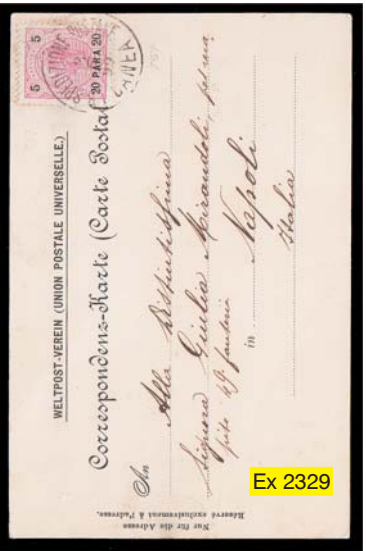 5 5
20 PARA 20
SPEDIZIONE POSTALE
CANEA
WELTPOST-VEREIN (UNION POSTALE UNIVERSELLE.)
Correspondenz-Karte (Carte Postale
An
Alla Distintissima
Signora Giulia Mirandoli,
49 fanteria
in Napoli
Italia
Nur für die Adresse
Réservé exclusivement à l'adresse.
Ex 2329